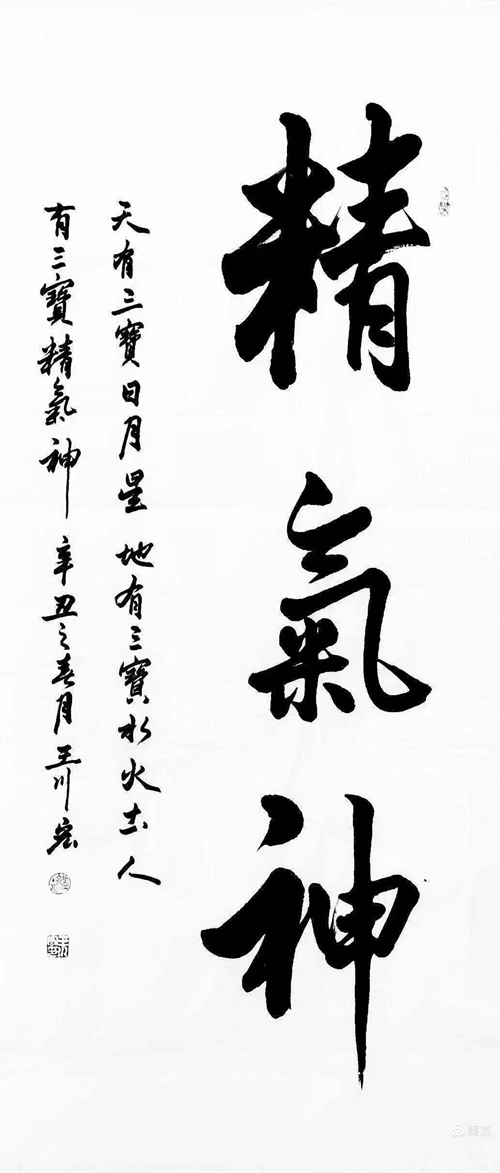 精氣神
天有三寶日月星地有三寶水火土人
有三寶精氣神辛丑之春月王川宏